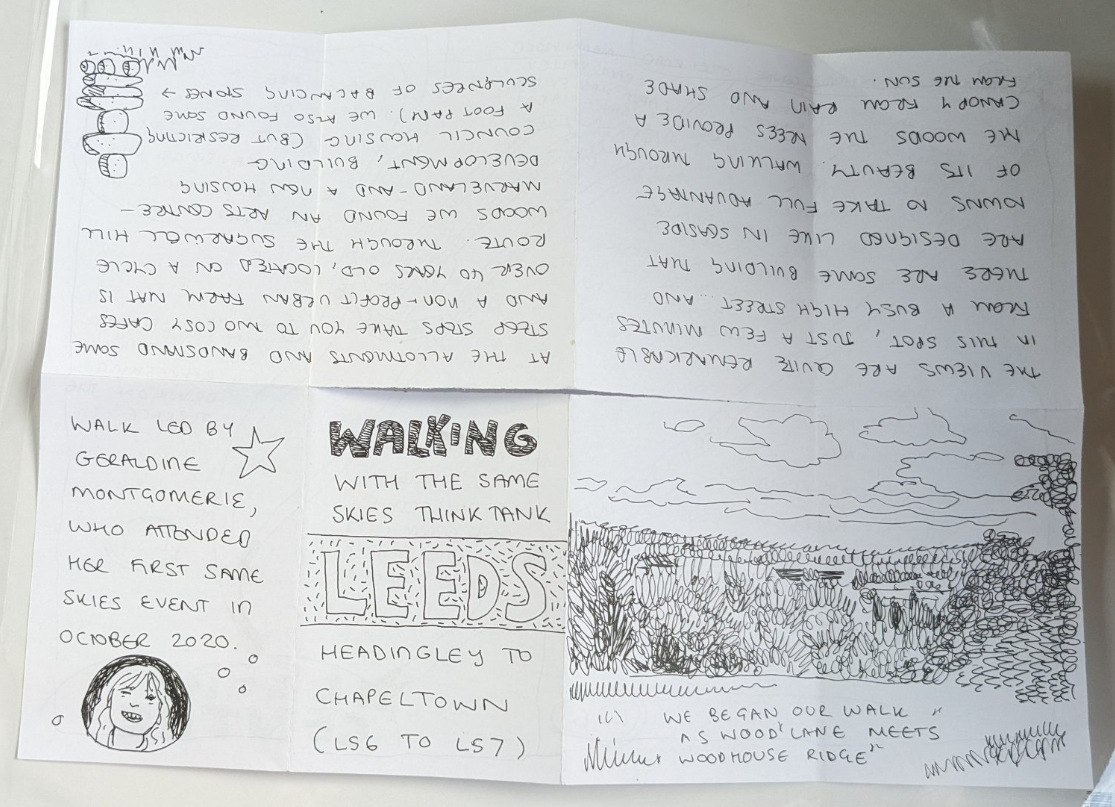 WALKING
WITH THE SAME
SKIES THINK TANK
LEEDS
HEADINGLEY TO
CHAPELTOWN
(LS6 TO LS7)
WE BEGAN OUR WALK "
AS WOOD LANE MEETS
WOODHOUSE RIDGE"
THE VIEWS ARE QUITE REMARKABLE
IN THIS SPOT, JUST A FEW MINUTES
FROM A BUSY HIGH STREET ... AND
THERE ARE SOME BUILDING THAT
ARE DESIGNED LIKE IN SEASIDE
TOWNS TO TAKE FULL ADVANTAGE
OF ITS BEAUTY. WALKING THROUGH
THE WOODS THE TREES PROVIDE A
CANOPY FROM RAIN AND SHADE
FROM THE SUN.
AT THE ALLOTMENTS AND BANDSTAND SOME
STEEP STEPS TAKE YOU TO TWO COSY CAFES
AND A NON-PROFIT URBAN FARM THAT IS
OVER 40 YEARS OLD, LOCATED ON A CYCLE
ROUTE. THROUGH THE SUGARWELL HILL
WOODS WE FOUND AN ARTS CENTRE -
MARVELAND - AND A NEW HOUSING
DEVELOPMENT, BUILDING
COUNCIL HOUSING (BUT RESTRICTING
A FOOTPATH). WE ALSO FOUND SOME
SCULPTURES OF BALANCING STONES →
WALK LED BY
GERALDINE
MONTGOMERIE,
WHO ATTENDED
HER FIRST SAME
SKIES EVENT IN
OCTOBER 2020.